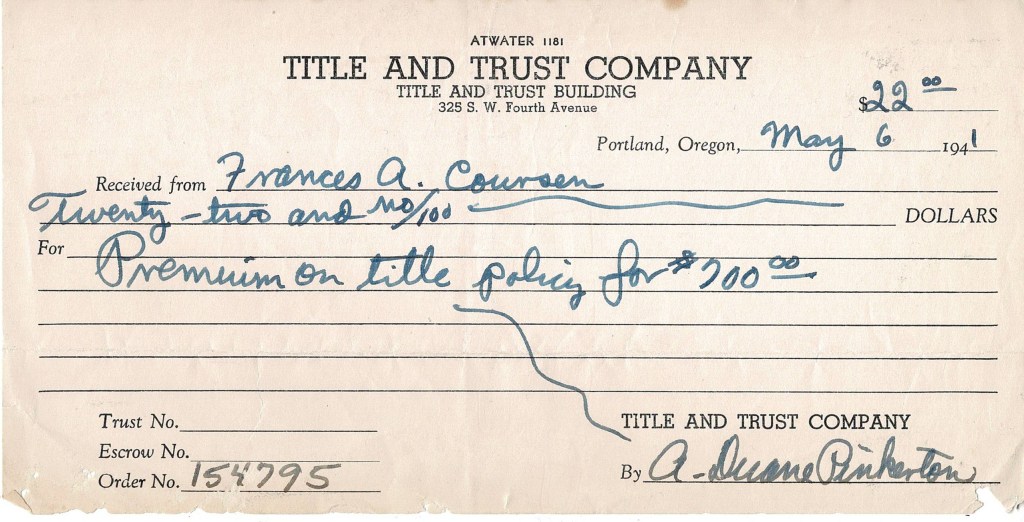 ATWATER 1181
TITLE AND TRUST COMPANY
TITLE AND TRUST BUILDING
325 S. W. Fourth Avenue
$22 00
Portland, Oregon, May 6 1941
Received from Frances A. Coursen
Twenty-two and no/100 DOLLARS
For Premium on title policy for $700 00
Trust No.
Escrow No.
Order No. 154795
TITLE AND TRUST COMPANY
By A. Duane Pinkerton